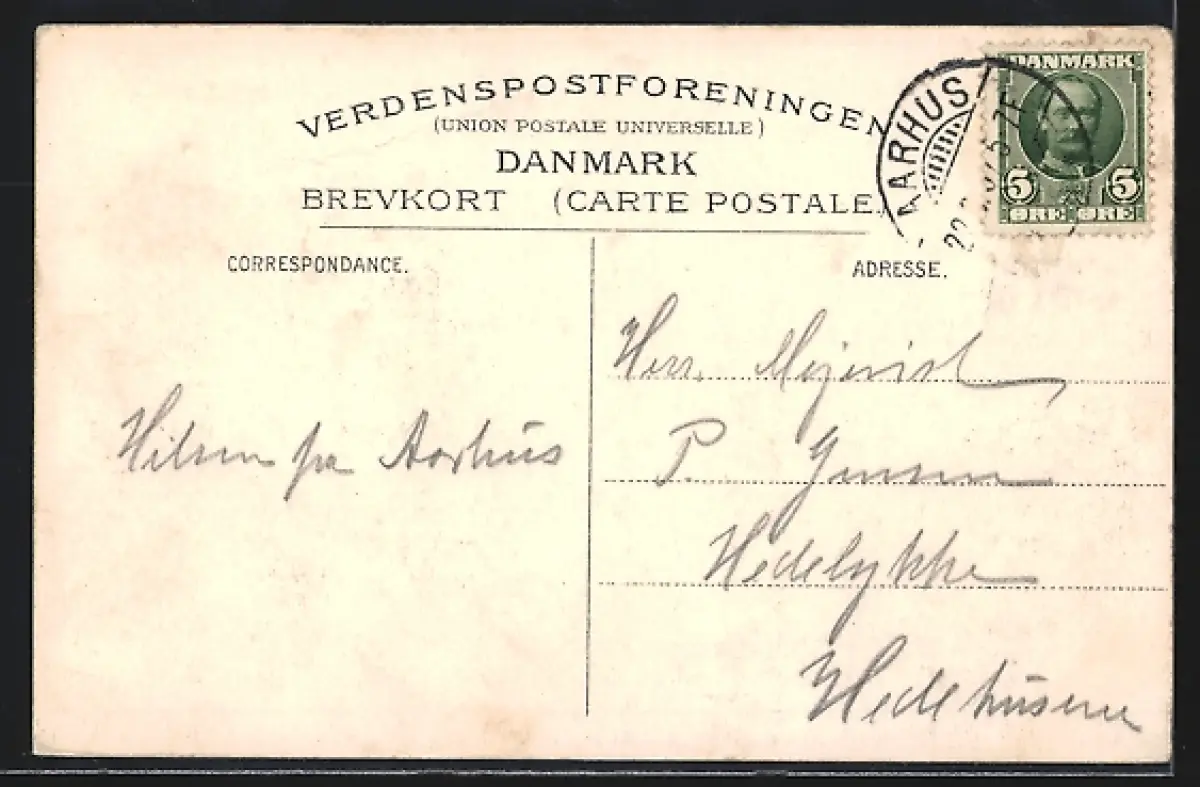 VERDENSPOSTFORENINGEN
(UNION POSTALE UNIVERSELLE)
DANMARK
BREVKORT (CARTE POSTALE)
AARHUS
DANMARK
5 5
ØRE ØRE
CORRESPONDANCE.
ADRESSE.
Hilsen fra Aarhus
Herr. Mejerist
P. Jensen
Hedelykke
Hedehusene